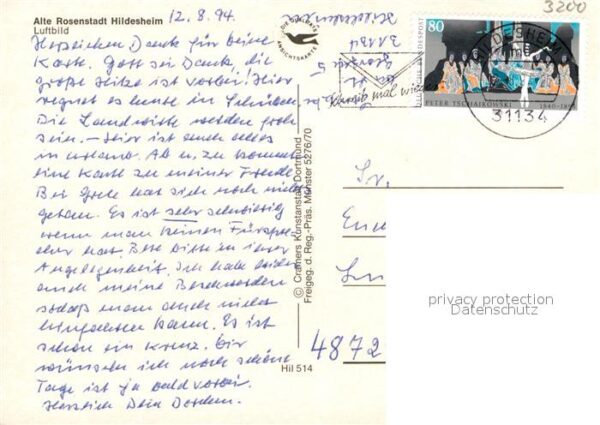 Alte Rosenstadt Hildesheim
Luftbild
12.8.94.
3200
Herzlichen Dank für deine
Karte. Gott sei Dank die
große Hitze ist vorbei! Hier
regnet es heute in Schüben
Die Landwirte werden froh
sein. – Hier ist auch alles
in Ab u. zu kommt
eine Karte zu meiner Freude.
Bei Grete hat sich noch nichts
getan. Es ist sehr schwierig
wenn man keinen
aber hat. Bete bitte in ihrer
Angelegenheit. Ich habe leider
auch meine Beschwerden
sodaß man auch nicht
kann. Es ist
schon ein Kreuz. Dir
wünsche ich noch schöne
Tage ist ja bald vorbei.
Herzlich Dein
DIE
ANSICHTSKARTE
© Cramers Kunstanstalt Dortmund
Freigeg. d. Reg.-Präs. Münster 5276/70
Hil 514
31134
80
DEUTSCHE BUNDESPOST
PETER TSCHAIKOWSKI 1840-1893
HILDESHEIM
31134
Schreib mal wieder
4872
privacy protection
Datenschutz